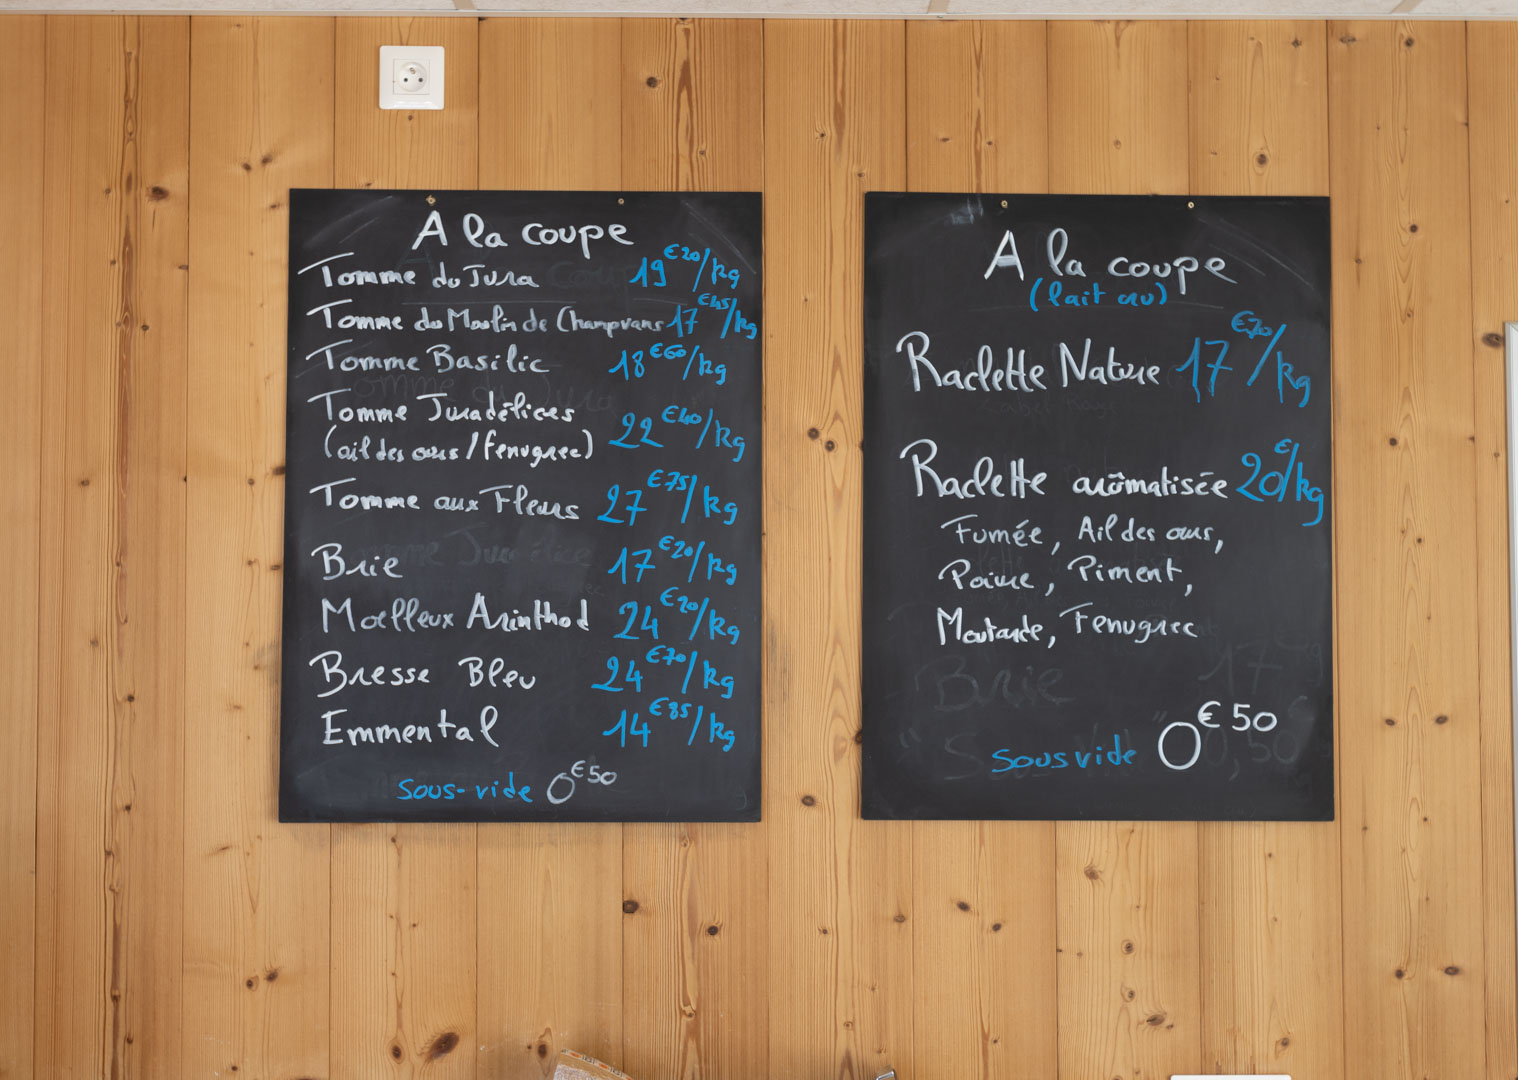 A la coupe
Tomme du Jura 19€20/kg
Tomme du Moulin de Champvans 17€45/kg
Tomme Basilic 18€60/kg
Tomme Juradélices
(ail des ours / Fenugrec) 22€40/kg
Tomme aux Fleurs 27€75/kg
Brie 17€20/kg
Moelleux Arinthod 24€20/kg
Bresse Bleu 24€70/kg
Emmental 14€85/kg
Sous-vide 0€50
A la coupe
(lait cru)
Raclette Nature 17€70/kg
Raclette arômatisée 20€/kg
Fumée, Ail des ours,
Poivre, Piment,
Moutarde, Fenugrec
Brie 17
Sous vide 0€50